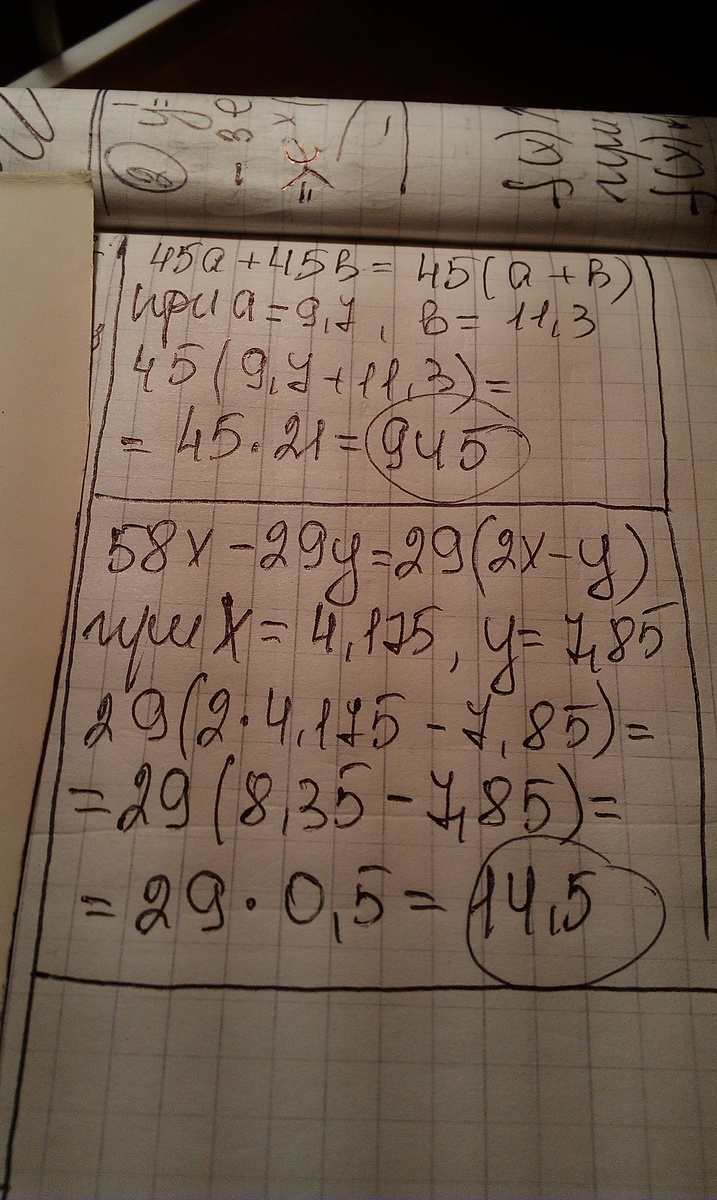 45a+45в= 45(a+в)
при a=9,7, в= 11,3
45(9,7+11,3)=
= 45·21=945
58x-29y=29(2x-y)
при x= 4,175, y= 7,85
29(2·4,175-7,85)=
=29(8,35-7,85)=
=29·0,5= 14,5